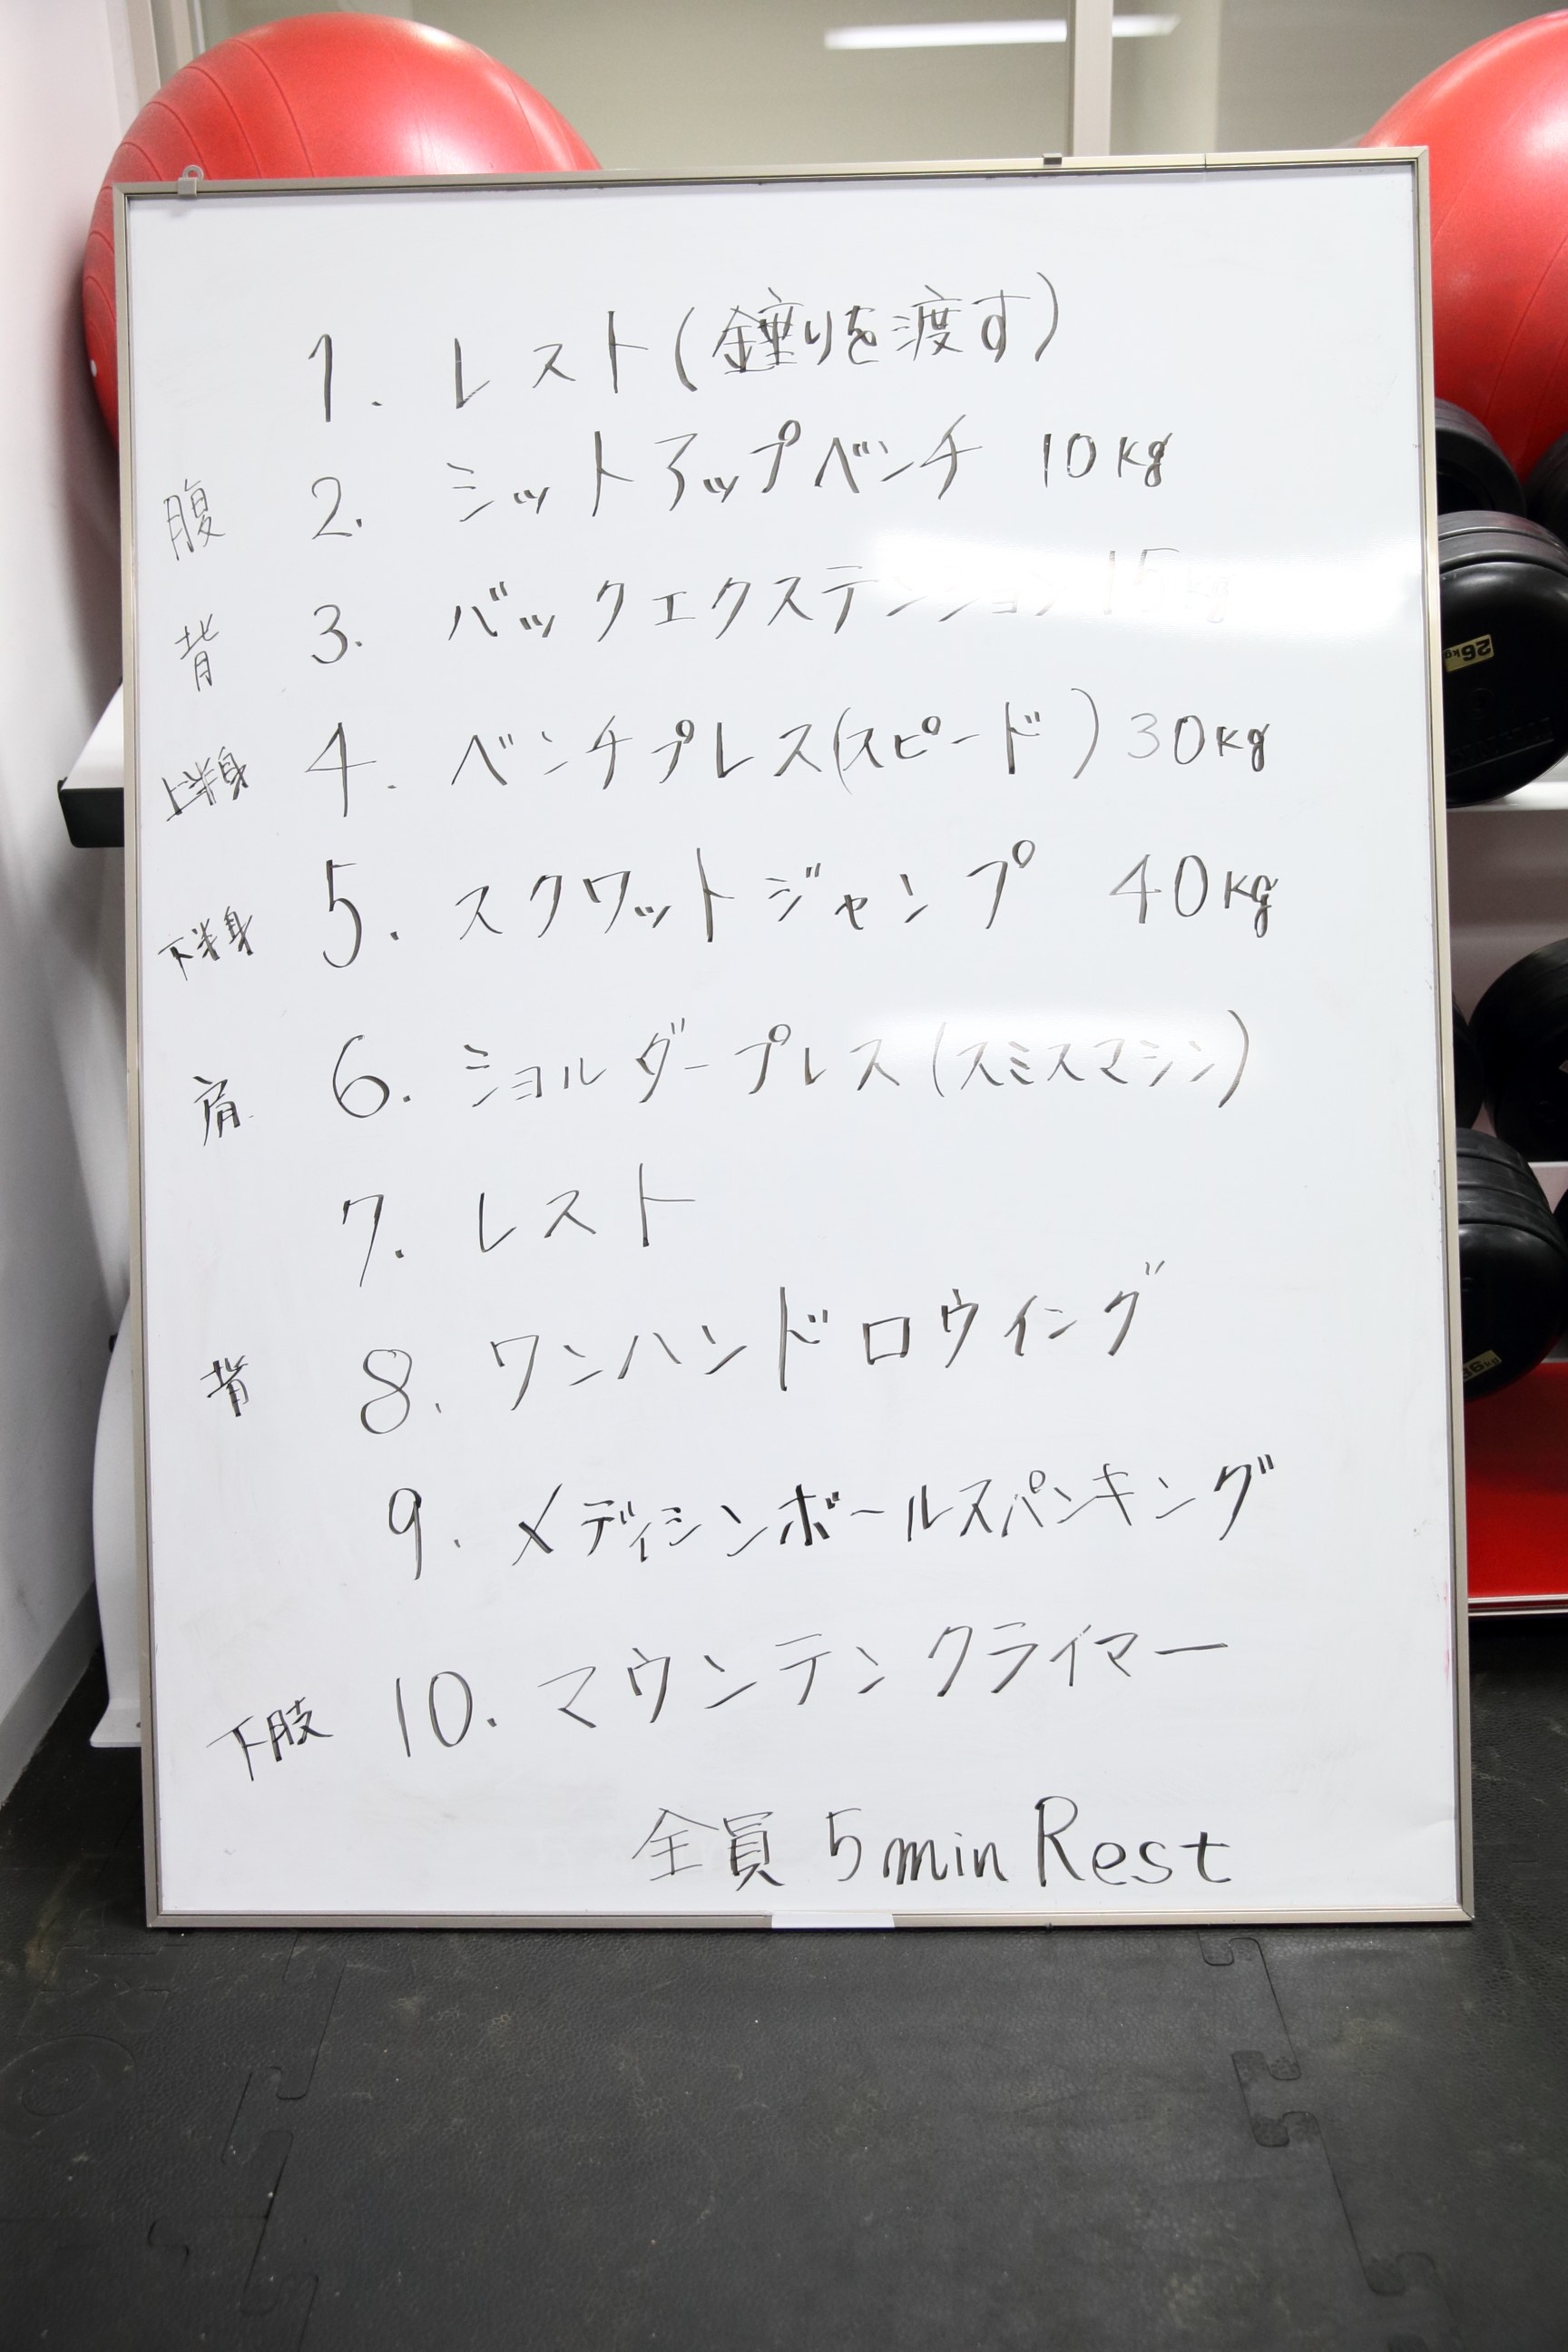 1. レスト(錘りを渡す)
腹 2. シットアップベンチ 10kg
背 3. バックエクステンション 15kg
上半身 4. ベンチプレス(スピード) 30kg
下半身 5. スクワットジャンプ 40kg
肩 6. ショルダープレス(スミスマシン)
7. レスト
背 8. ワンハンドロウイング
9. メディシンボールスパンキング
下肢 10. マウンテンクライマー
全員 5min Rest
26kg
36kg